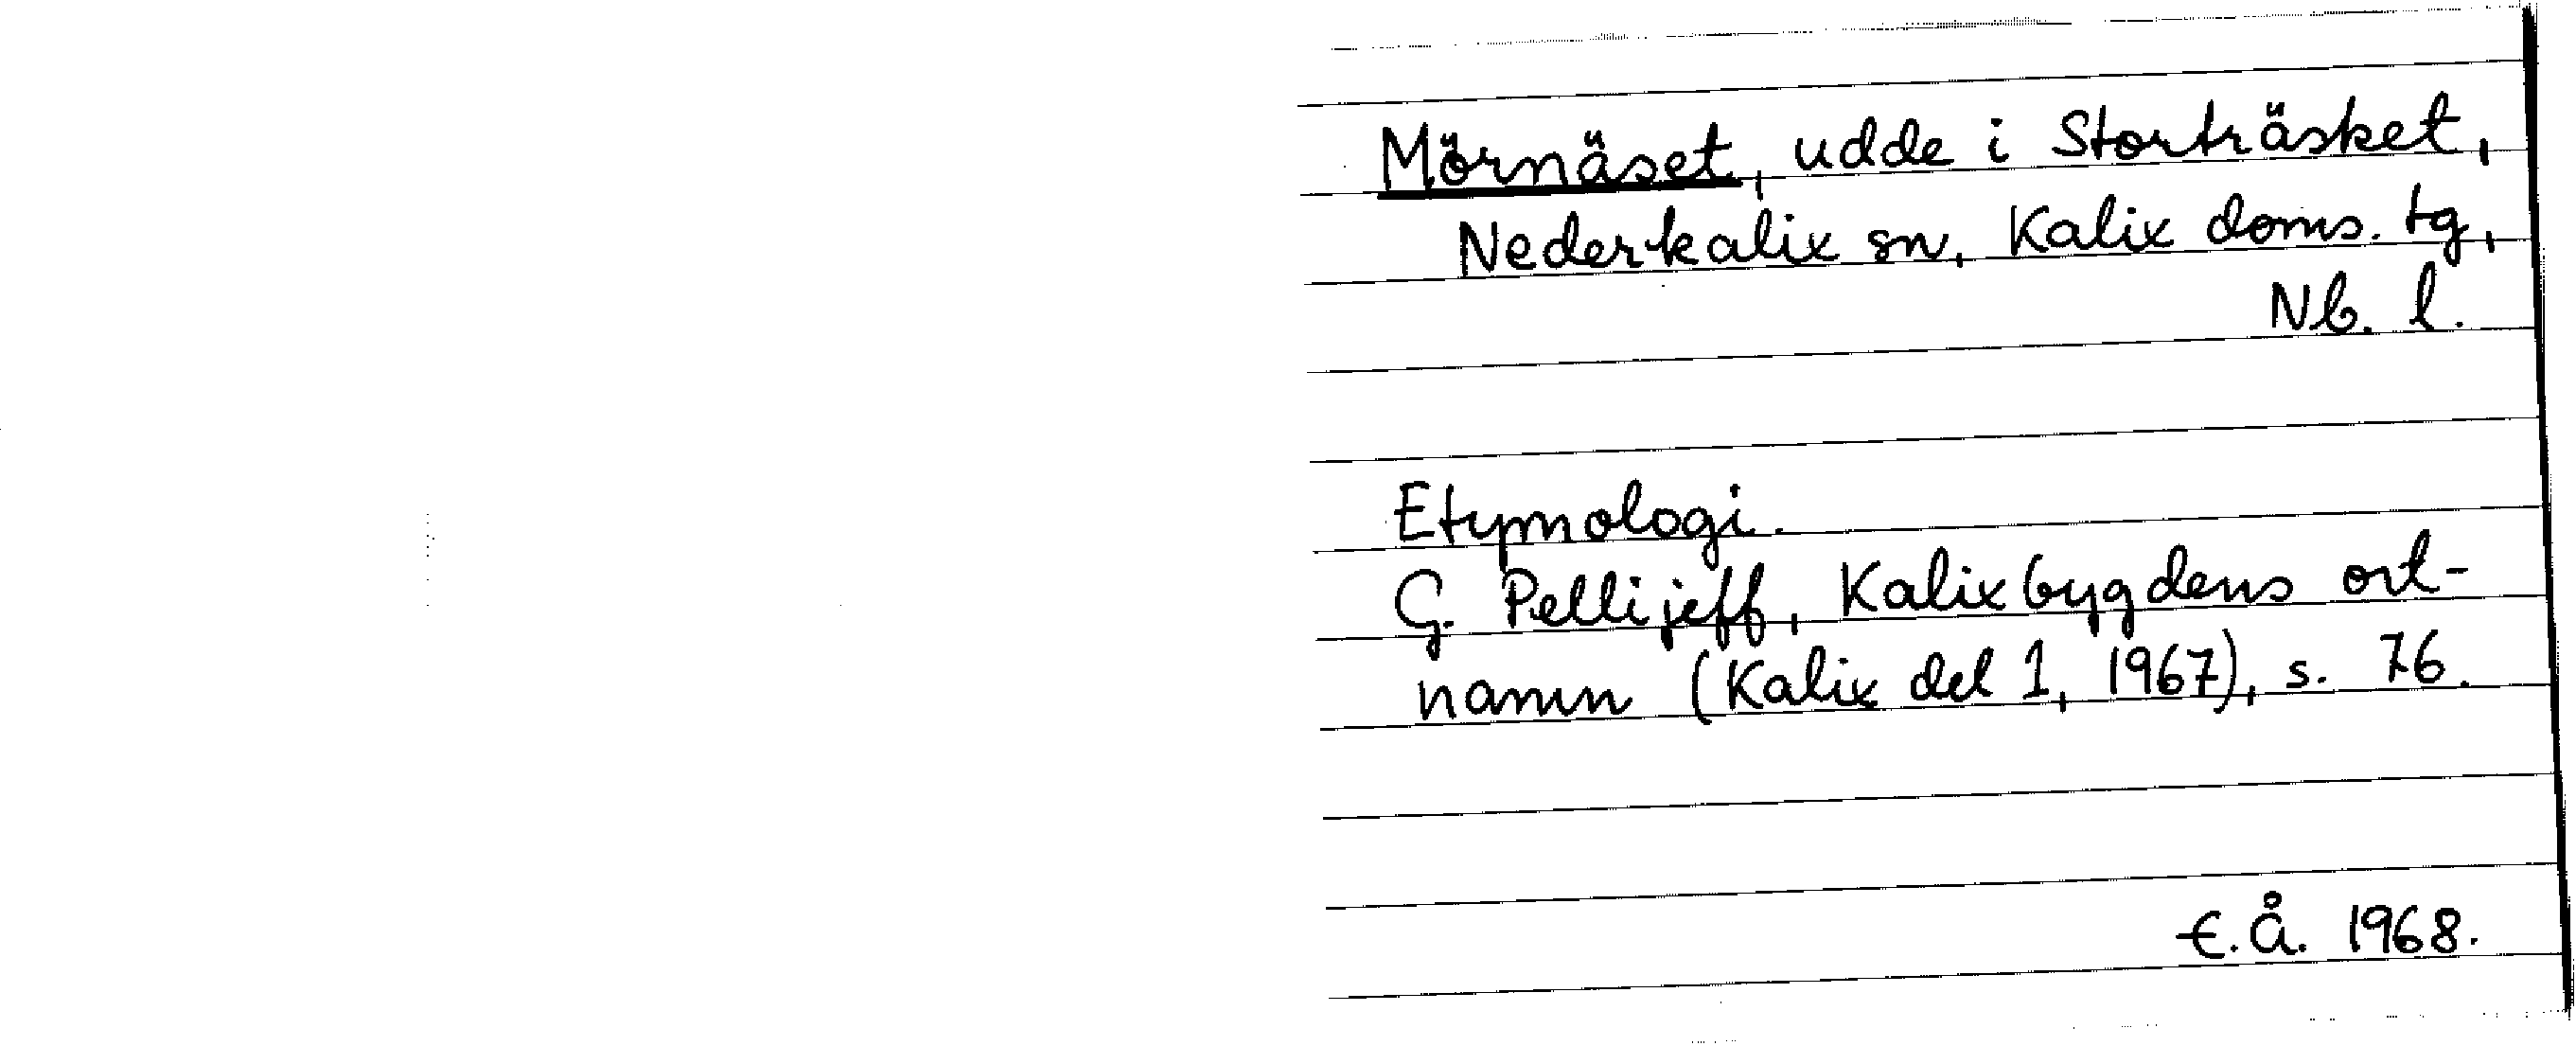 Mörnäset, udde i Storträsket,
Nederkalix sn, Kalix doms. tg,
Nb. l.
Etymologi.
G. Pellijeff, Kalixbygdens ort-
namn (Kalix del 1, 1967), s. 76.
E.Å. 1968.